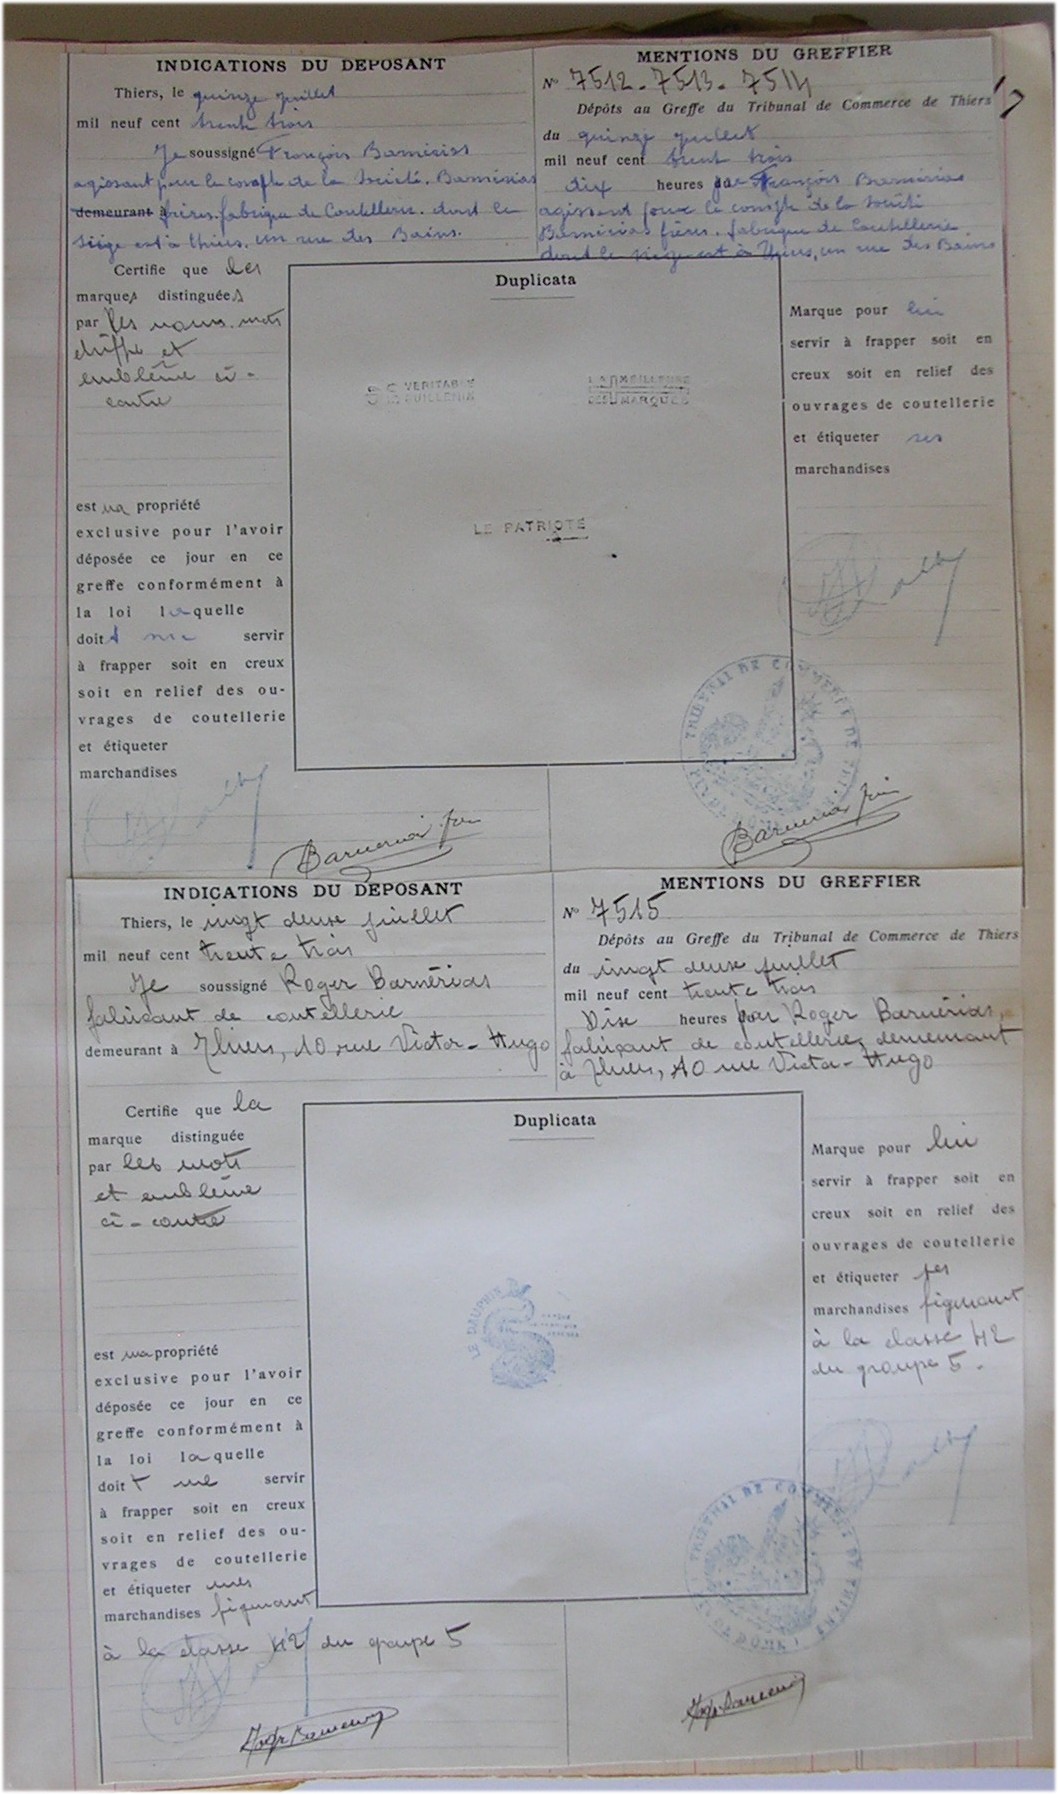 INDICATIONS DU DEPOSANT
Thiers, le quinze juillet
mil neuf cent trente trois
Je soussigné François Barnérias
agissant pour le compte de la Société Barnérias
demeurant à frères. fabrique de Coutellerie. dont le
siège est à Thiers, un rue des Bains.
Certifie que les
marques distinguées
par les noms. mots
chiffre et
emblème ci-
contre
est ma propriété
exclusive pour l'avoir
déposée ce jour en ce
greffe conformément à
la loi laquelle
doit me servir
à frapper soit en creux
soit en relief des ou-
vrages de coutellerie
et étiqueter
marchandises
Barnérias frères
MENTIONS DU GREFFIER
No 7512 - 7513 - 7514
Dépôts au Greffe du Tribunal de Commerce de Thiers
du quinze juillet
mil neuf cent trente trois
dix heures par François Barnérias
agissant pour le compte de la Société
Barnérias frères. fabrique de Coutellerie.
dont le siège est à Thiers, un rue des Bains
Duplicata
VERITABLE
LA MEILLEURE
DES MARQUES
LE PATRIOTE
Marque pour lui
servir à frapper soit en
creux soit en relief des
ouvrages de coutellerie
et étiqueter ses
marchandises
TRIBUNAL DE COMMERCE DE THIERS
Barnérias frères
INDICATIONS DU DEPOSANT
Thiers, le vingt deux juillet
mil neuf cent trente trois
Je soussigné Roger Barnérias
fabricant de coutellerie
demeurant à Thiers, 10 rue Victor-Hugo
Certifie que la
marque distinguée
par les mots
et emblème
ci-contre
est ma propriété
exclusive pour l'avoir
déposée ce jour en ce
greffe conformément à
la loi laquelle
doit me servir
à frapper soit en creux
soit en relief des ou-
vrages de coutellerie
et étiqueter mes
marchandises figurant
à la classe 42 du groupe 5
MENTIONS DU GREFFIER
No 7515
Dépôts au Greffe du Tribunal de Commerce de Thiers
du vingt deux juillet
mil neuf cent trente trois
Dise heures par Roger Barnérias,
fabricant de coutellerie, demeurant
à Thiers, 10 rue Victor-Hugo
Duplicata
LE DAUPHIN
Marque pour lui
servir à frapper soit en
creux soit en relief des
ouvrages de coutellerie
et étiqueter ses
marchandises figurant
à la classe 42
du groupe 5.
TRIBUNAL DE COMMERCE DE THIERS